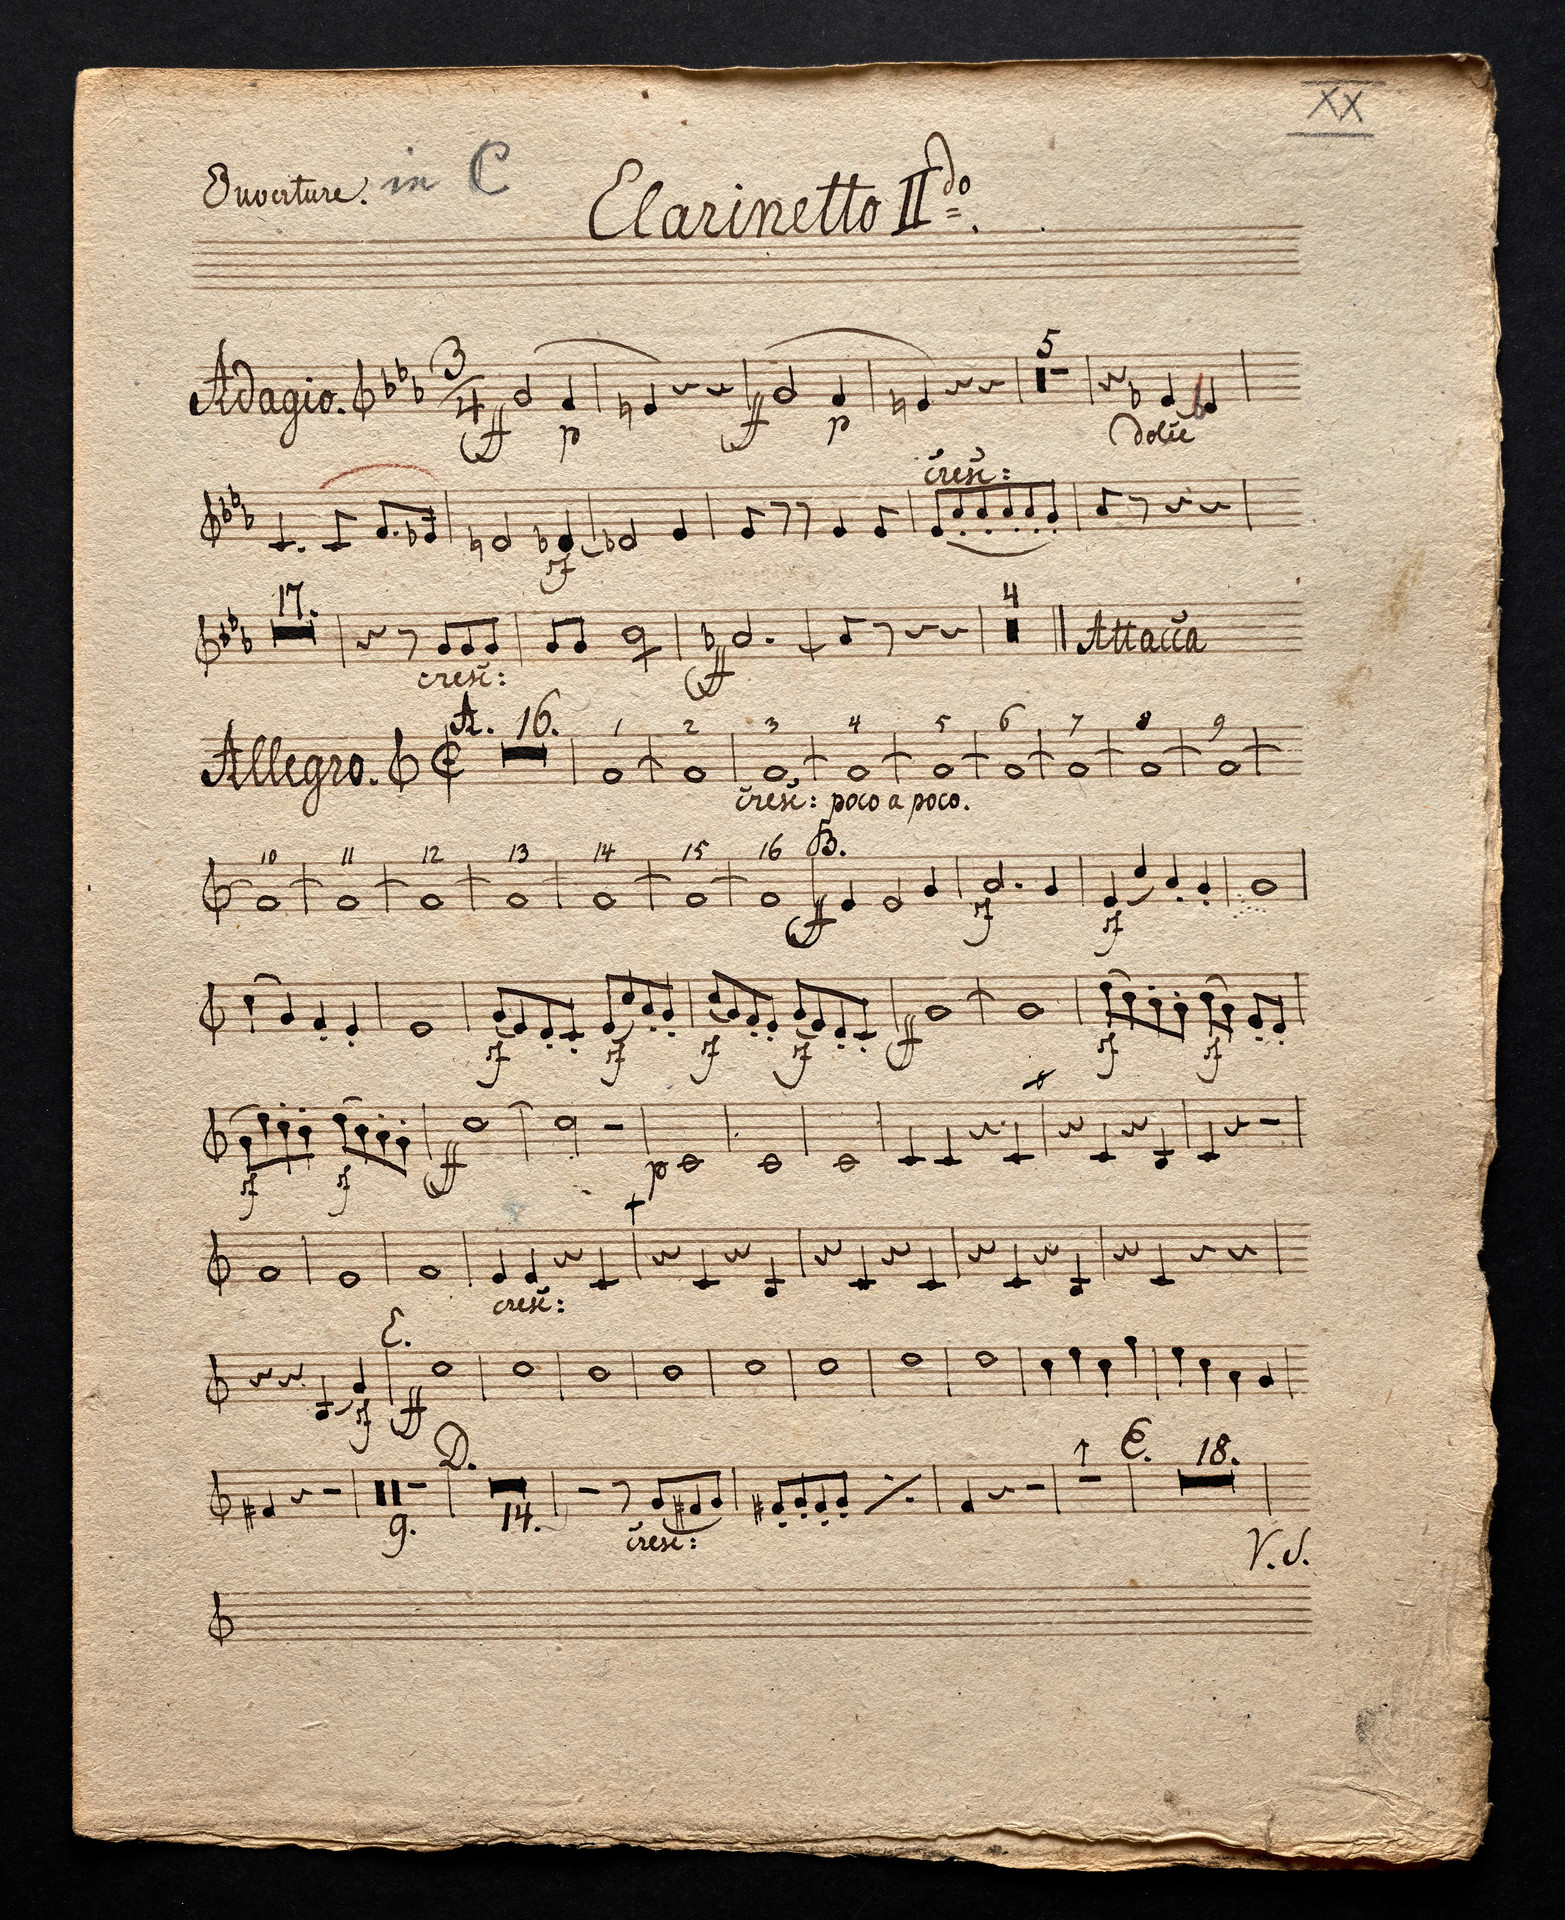 XX
Ouverture. in C
Clarinetto II do.
Adagio. 3/4 ff p ff p 5 dolce
cresc:
sf
17. 4
cresc: ff Attacca
Allegro. A. 16. 1 2 3 4 5 6 7 8 9
cresc: poco a poco.
10 11 12 13 14 15 16 B.
ff sf sf
sf sf sf sf ff sf sf
sf sf ff p
cresc:
C.
sf ff
D. 1 E. 18.
9. 14. cresc:
V. S.